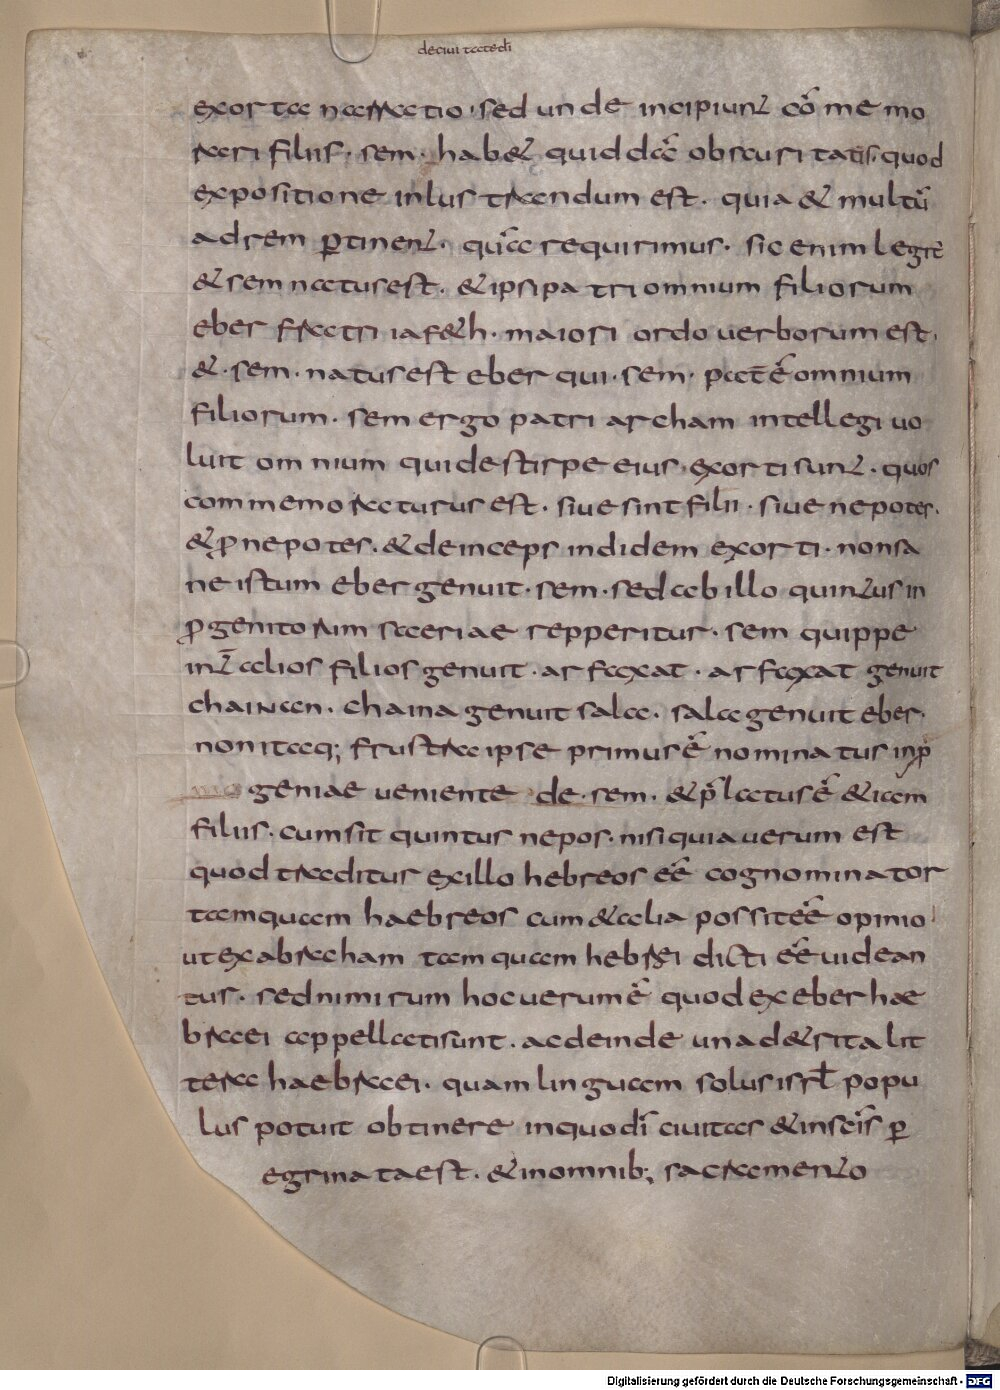 de ciui tate di
exorta narratio · sed unde incipiunt cō me mo
rari filiis · sem · habet quiddā obscuri tatis · quod
expositione inlustrandum est · quia & multū
ad rem ꝑtinent · quā requirimus · sic enim legit̄
& sem natus est · & ipsi patri omnium filiorum
eber fratri iafeth · maiori ordo uerborum est ·
& · sem · natus est eber qui · sem · patrē omnium
filiorum · sem ergo patriarcham intellegi uo
luit omnium qui de stirpe eius exorti sunt · quos
commemoraturus est · siue sint filii · siue nepotes ·
& ꝓnepotes · & deinceps indidem exorti · non sa
ne istum eber genuit · sem · sed ab illo quintus in
ꝓgenitorum saeriae repperitur · sem quippe
int̄ alios filios genuit · arfaxat · arfaxat genuit
chainan · chaina genuit sala · sala genuit eber ·
non itaq; frustra ipse primus ē nominatus in ꝓ
geniae ueniente de · sem · & p̄latus ē & iam
filiis · cum sit quintus nepos · nisi quia uerum est
quod traditur ex illo hebreos eē cognominatos
tamquam haebreos cum & alia possit eē opinio
ut ex abraham tamquam hebraei dicti eē uidean
tur · sed nimirum hoc uerum ē quod ex eber hae
braei appellati sunt · ac deinde una d& sita lit
tera haebraei · quam linguam solus isrl popu
lus potuit obtinere in quo di ciuitas & in scis ꝑ
egrinata est · & in omnib; sacramento
Digitalisierung gefördert durch die Deutsche Forschungsgemeinschaft - DFG